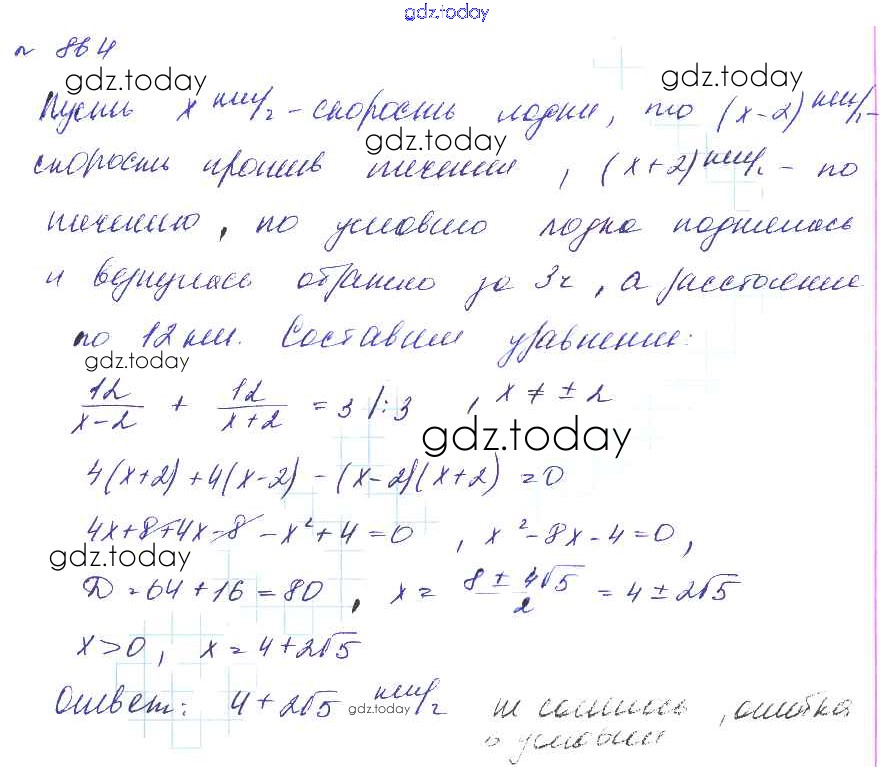 gdz.today
№ 864
gdz.today
gdz.today
Пусть x км/ч - скорость лодки, то (x-2) км/ч -
gdz.today
скорость против течения, (x+2) км/ч - по
течению, по условию лодка поднялась
и вернулась обратно за 3ч, а расстояние
по 12 км. Составим уравнение:
gdz.today
12/(x-2) + 12/(x+2) = 3 /:3 , x ≠ ± 2
gdz.today
4(x+2)+4(x-2)-(x-2)(x+2)=0
4x+8+4x-8-x²+4=0, x²-8x-4=0,
gdz.today
D=64+16=80, x = (8±4√5)/2 = 4±2√5
x>0, x=4+2√5
Ответ: 4+2√5 км/ч не сошлись, ошибка
gdz.today
в условии